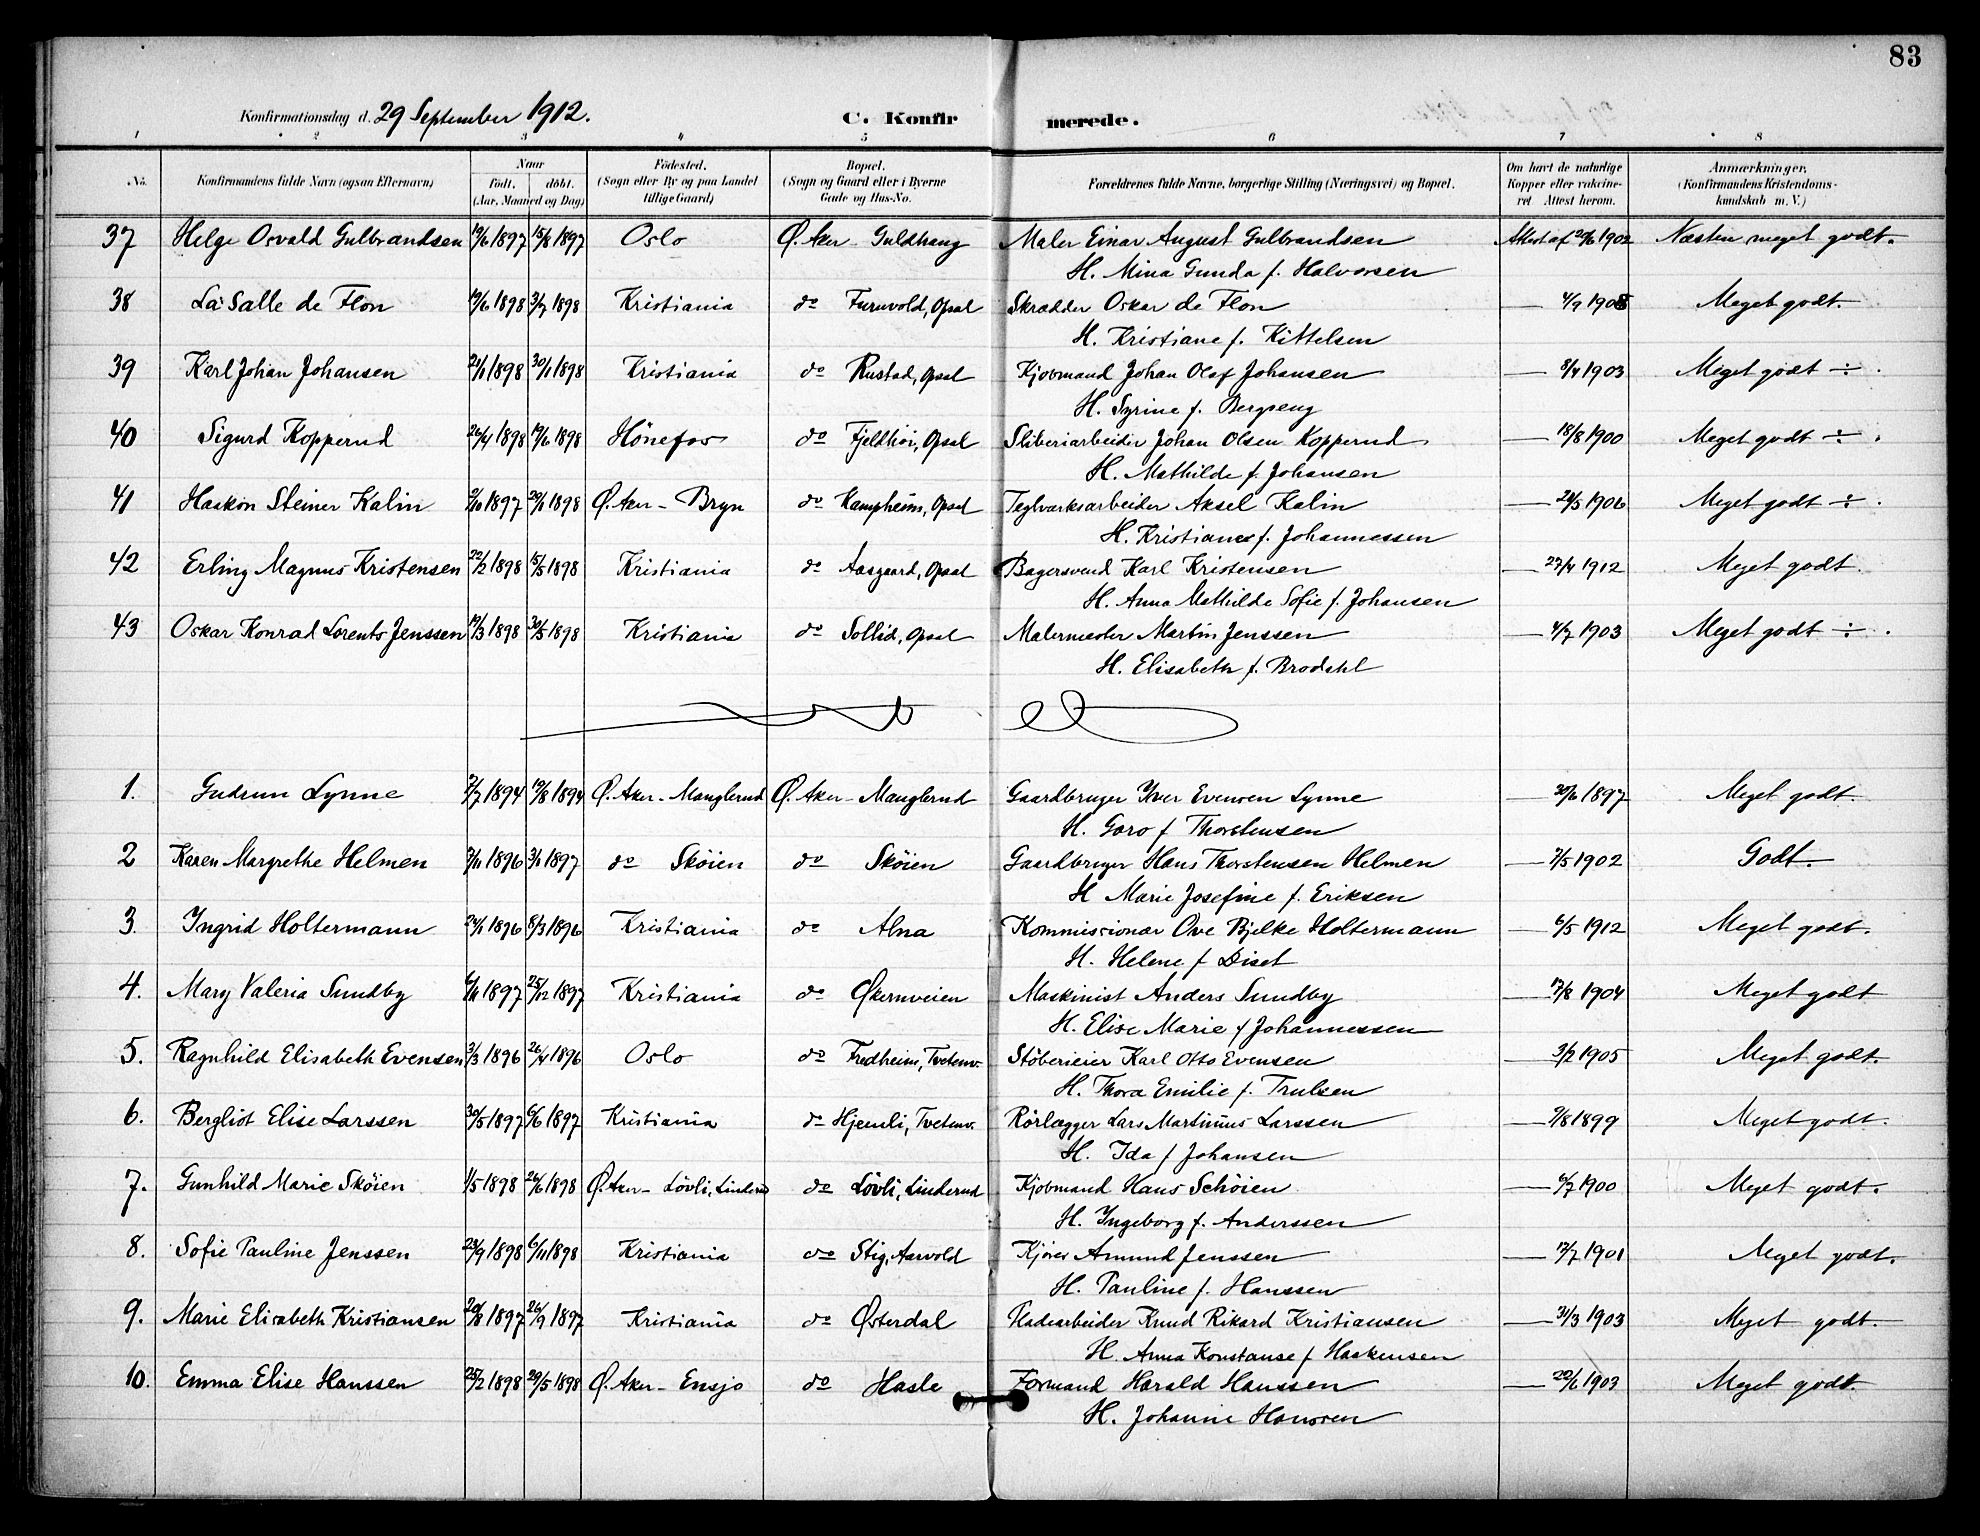 83
Konfirmationsdag d. 29 September 1912.
C. Konfirmerede.
1 2 3 4 5 6 7 8
No. Konfirmandens fulde Navn (ogsaa Efternavn) Naar født. døbt. (Aar, Maaned og Dag) Fødested. (Sogn eller By og paa Landet tillige Gaard) Bopæl. (Sogn og Gaard eller i Byerne Gade og Hus-No. Forældrenes fulde Navne, borgerlige Stilling (Næringsvei) og Bopæl. Om havt de naturlige Kopper eller vakcineret. Attest herom. Anmærkninger, (Konfirmandens Kristendomskundskab m. V.)
37 Helge Osvald Gulbrandsen 19/6 1897 15/8 1897 Oslo Ø. Aker - Guldhaug Maler Einar August Gulbrandsen Attest af 20/6 1902 Næsten meget godt.
H. Mina Gunda f. Halvorsen
38 La Salle de Flon 19/6 1898 3/7 1898 Kristiania do Furuvold, Opsal Skrædder Oskar de Flon — 4/9 1908 Meget godt.
H. Kristiane f. Kittelsen
39 Karl Johan Johansen 21/1 1898 30/1 1898 Kristiania do Rustad, Opsal Kjøbmand Johan Olaf Johansen — 8/4 1903 Meget godt ÷.
H. Syrine f. Bergseng
40 Sigurd Kopperud 26/4 1898 19/6 1898 Hönefos do Fjeldhöi, Opsal Sliberiarbeider Johan Olsen Kopperud — 18/8 1900 Meget godt ÷.
H. Mathilde f. Johansen
41 Haakon Steiner Kalin 2/10 1897 20/1 1898 Ø. Aker - Bryn do Kampheim, Opsal Teglværksarbeider Aksel Kalin — 24/5 1906 Meget godt ÷.
H. Kristiane f. Johannessen
42 Erling Magnus Kristensen 22/2 1898 15/5 1898 Kristiania do Aasgaard, Opsal Bagersvend Karl Kristensen — 27/4 1912 Meget godt.
H. Anna Mathilde Sofie f. Johansen
43 Oskar Konrad Lorents Jenssen 19/3 1898 30/5 1898 Kristiania do Sollid, Opsal Malermester Martin Jenssen — 4/7 1903 Meget godt ÷.
H. Elisabeth f. Brodahl
1. Gudrun Lynne 2/7 1894 19/8 1894 Ø. Aker - Manglerud Ø. Aker - Manglerud Gaardbruger Iver Evensen Lynne — 30/6 1897 Meget godt.
H. Goro f Thorstensen
2 Karen Margrethe Helmen 7/11 1896 3/1 1897 do Skøien do Skøien Gaardbruger Hans Thorstensen Helmen — 7/5 1902 Godt.
H Marie Josefine f. Eriksen
3. Ingrid Holtermann 24/1 1896 8/3 1896 Kristiania do Alna Kommissionær Ove Bjelke Holtermann — 6/5 1912 Meget godt.
H. Helene f Diset
4. Mary Valeria Sundby 6/11 1897 25/12 1897 Kristiania do Økernveien Maskinist Anders Sundby — 17/8 1904 Meget godt
H. Elise Marie f Johannessen
5. Ragnhild Elisabeth Evensen 3/3 1896 26/4 1896 Oslo do Fredheim, Tvetenv. Stöberieier Karl Otto Evensen — 3/2 1905 Meget godt.
H. Thora Emilie f. Trulsen
6. Bergliot Elise Larssen 30/5 1897 6/6 1897 Kristiania do Hjemli, Tvetenv. Rörlægger Lars Martinius Larssen — 9/8 1899 Meget godt.
H. Ida f Johansen
7. Gunhild Marie Skøien 1/5 1898 26/6 1898 Ø. Aker - Lövli, Linderud do Lövli, Linderud Kjøbmand Hans Schöien — 6/7 1900 Meget godt.
H. Ingeborg f. Anderssen
8. Sofie Pauline Jenssen 23/9 1898 6/11 1898 Kristiania do Stig, Aarvold Kjører Amund Jenssen — 17/7 1901 Meget godt.
H. Pauline f. Hanssen
9. Marie Elisabeth Kristiansen 20/8 1897 26/9 1897 Kristiania do Østerdal Pladearbeider Knud Rikard Kristiansen — 31/3 1903 Meget godt.
H. Anna Konstanse f Haakensen
10. Emma Elise Hanssen 25/2 1898 29/5 1898 Ø. Aker - Ensjo do Hasle Formand Harald Hanssen — 20/6 1903 Meget godt.
H. Johanne Hanssen